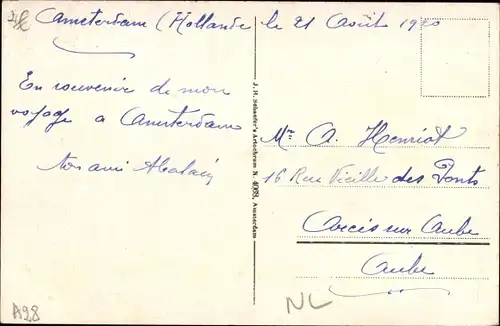 Amsterdam (Hollande le 21 Août 19
En souvenir de mon
voyage a Amsterdam
ami
J. H. Schaefer's Artochrom N. Amsterdam
Mr A. Henriot
16 Rue Vieille des Ponts
Arcis sur Aube
Aube
NL
A28